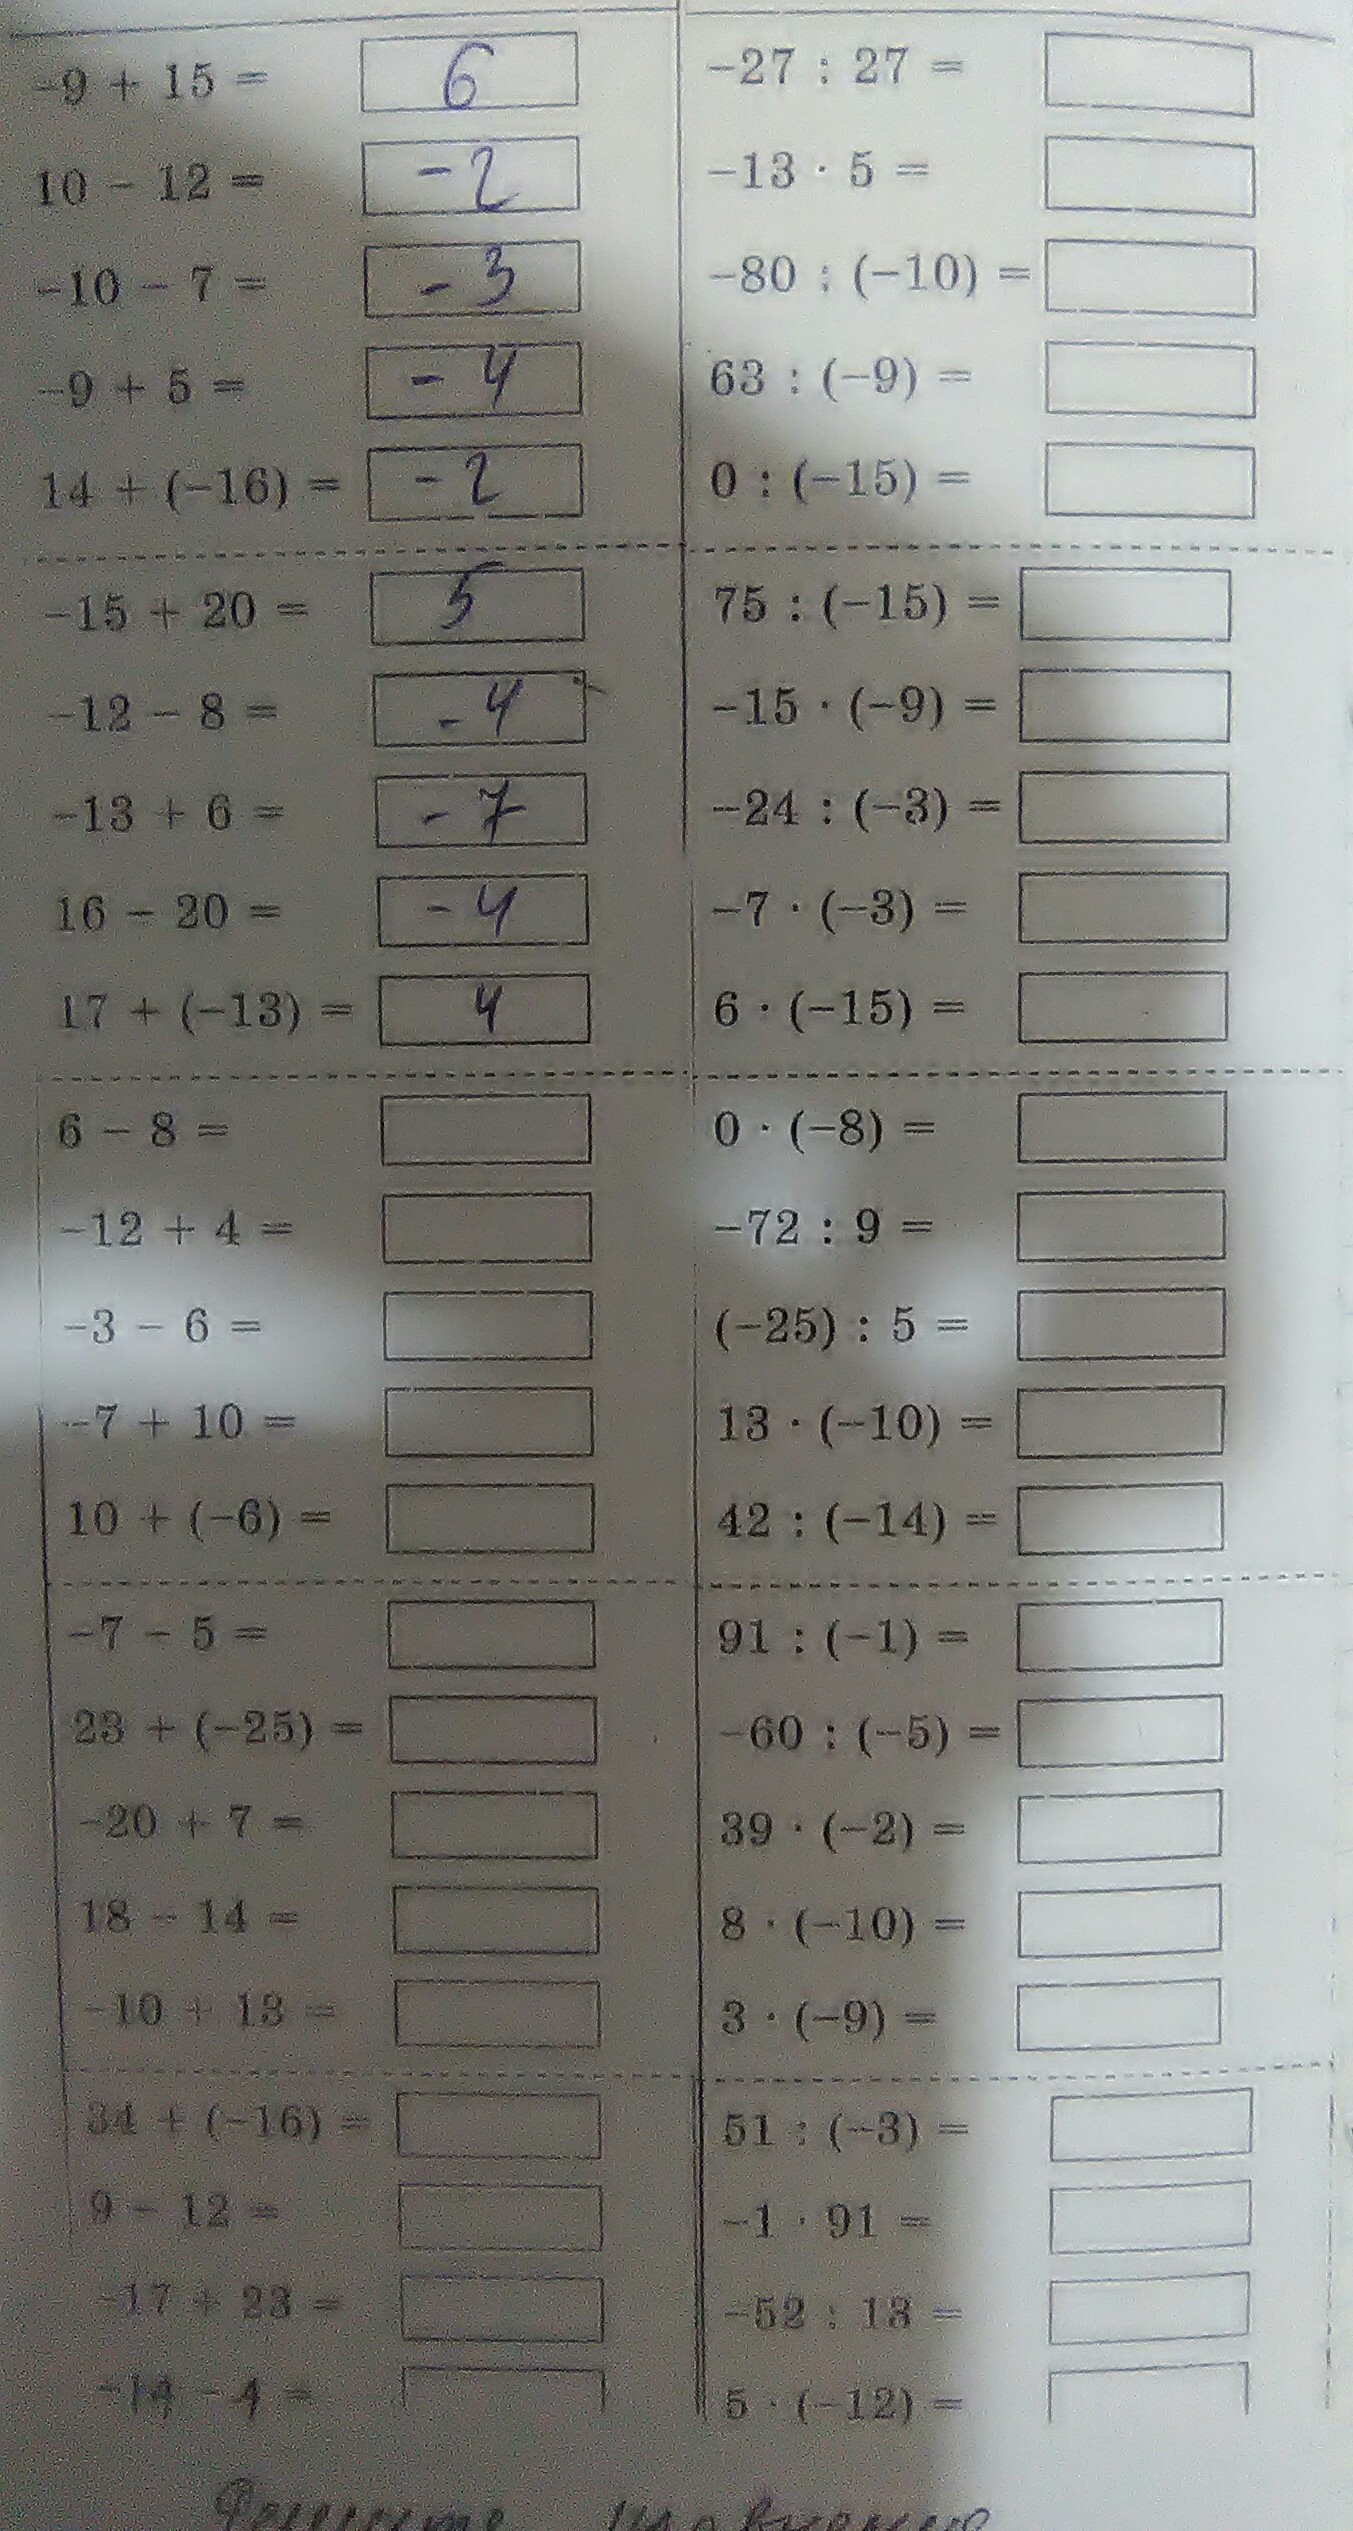 -9 + 15 = 6
10 - 12 = -2
-10 - 7 = -3
-9 + 5 = -4
14 + (-16) = -2
-15 + 20 = 5
-12 - 8 = -4
-13 + 6 = -7
16 - 20 = -4
17 + (-13) = 4
6 - 8 =
-12 + 4 =
-3 - 6 =
-7 + 10 =
10 + (-6) =
-7 - 5 =
23 + (-25) =
-20 + 7 =
18 - 14 =
-10 + 13 =
34 + (-16) =
9 - 12 =
-17 + 23 =
-14 - 4 =
-27 : 27 =
-13 · 5 =
-80 : (-10) =
63 : (-9) =
0 : (-15) =
75 : (-15) =
-15 · (-9) =
-24 : (-3) =
-7 · (-3) =
6 · (-15) =
0 · (-8) =
-72 : 9 =
(-25) : 5 =
13 · (-10) =
42 : (-14) =
91 : (-1) =
-60 : (-5) =
39 · (-2) =
8 · (-10) =
3 · (-9) =
51 : (-3) =
-1 · 91 =
-52 : 13 =
5 · (-12) =